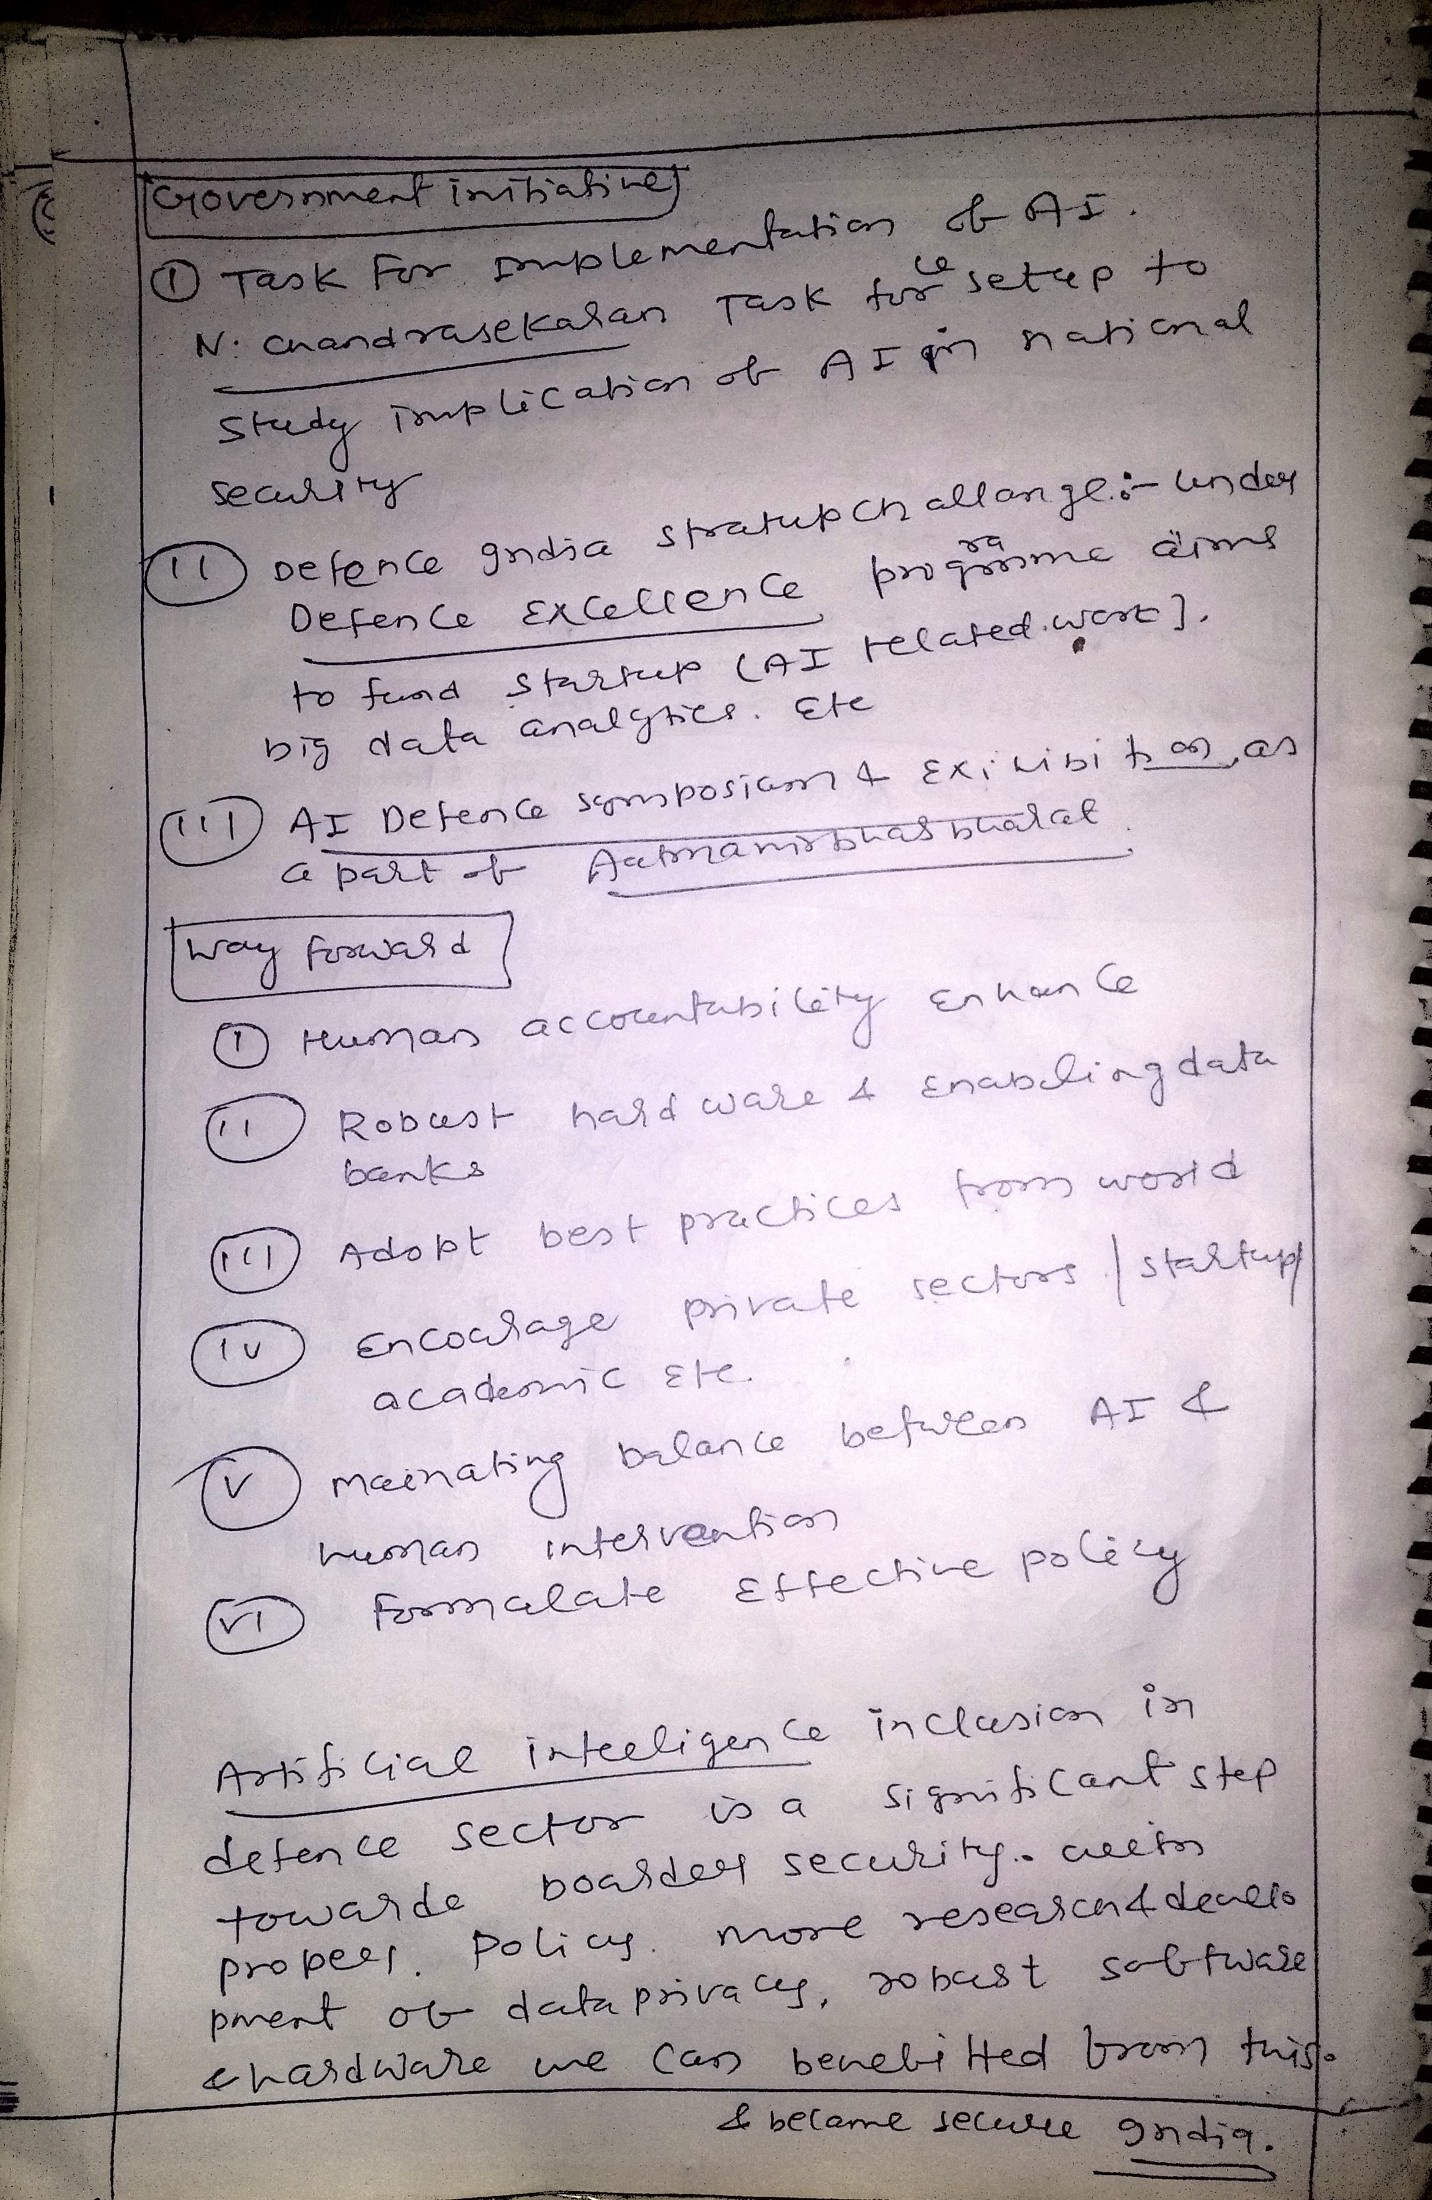 Government initiatives
(I) Task For Implementation of AI.
N. Chandrasekaran Task force setup to
study implication of AI in national
security
(II) Defence India stratup challange:- under
Defence Excellence programme aims
to fund startup (AI related work].
big data analytics. Etc
(III) AI Defence symposium & Exihibition, as
a part of Aatmanirbhar bharat
Way forward
(I) Human accountability enhance
(II) Robust hardware & Enabeling data
banks
(III) Adopt best practices from world
(IV) Encourage private sectors / startup/
academic Etc.
(V) Mainating balance between AI &
human intervention
(VI) Formalate Effective policy
Artificial inteeligence inclusion in
defence sector is a significant step
towards boarder security. with
proper policy. more research & develo
pment of data privacy, robust software
& hardware we can benefitted from this.
& became secure India.